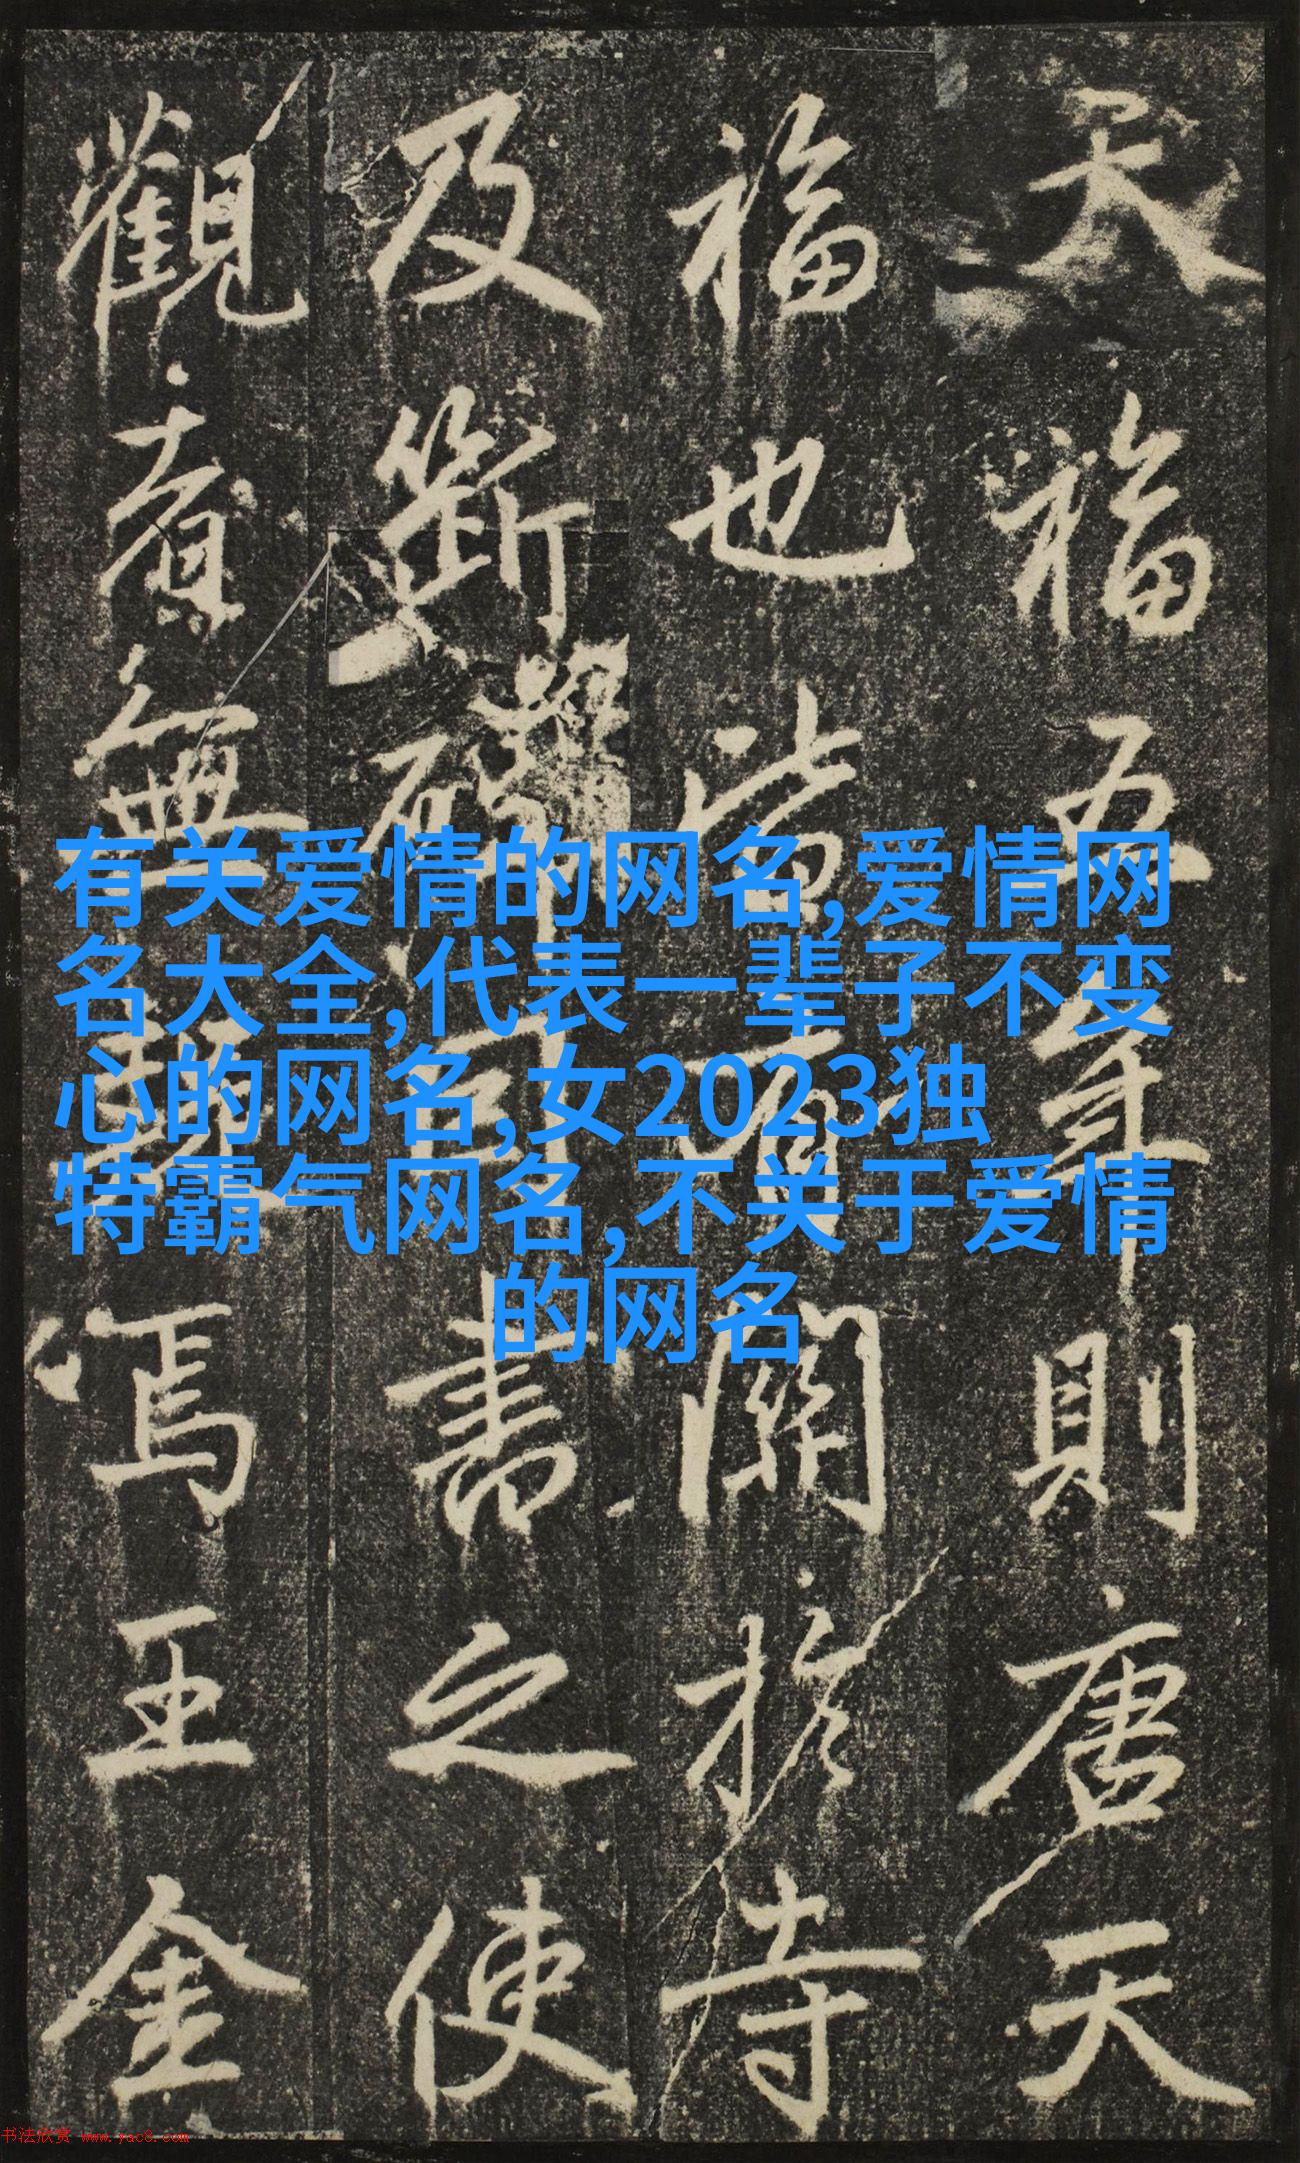 天福五年則唐天
福也當關扵寺
及斷碑書之使
觀無焉王金
有关爱情的网名,爱情网
名大全,代表一辈子不变
心的网名,女2023独
特霸气网名,不关于爱情
的网名
书法欣赏 www.yac8.com